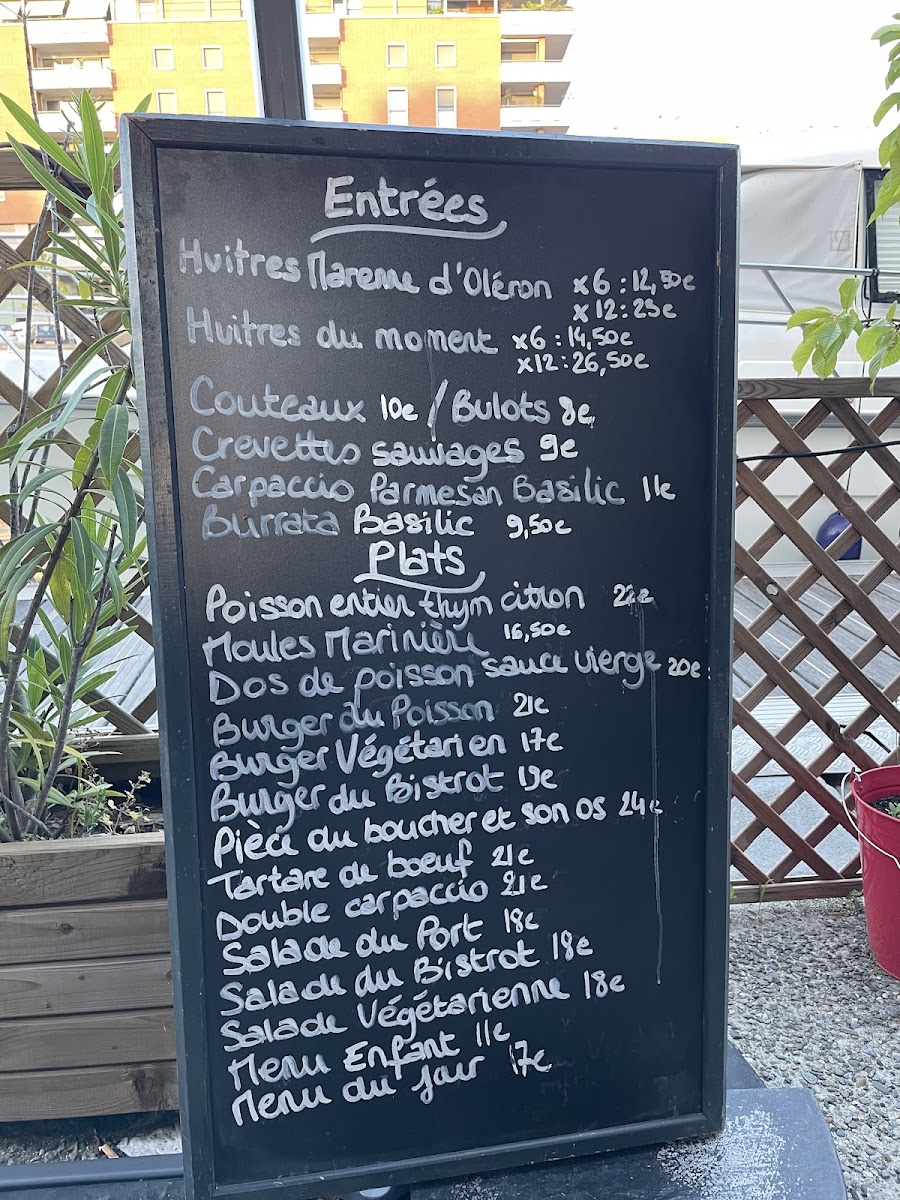 Entrées
Huitres Marenne d'Oléron x6 : 12,50€
x12 : 25€
Huitres du moment x6 : 14,50€
x12 : 26,50€
Couteaux 10€ / Bulots 8€
Crevettes sauvages 9€
Carpaccio Parmesan Basilic 11€
Burrata Basilic 9,50€
Plats
Poisson entier thym citron
Moules Marinière 16,50€
Dos de poisson sauce vierge 20€
Burger du Poisson 21€
Burger Végétarien 17€
Burger du Bistrot 19€
Pièce du boucher et son os 24€
Tartare de boeuf 21€
Double carpaccio 21€
Salade du Port 18€
Salade du Bistrot 18€
Salade Végétarienne 18€
Menu Enfant 11€
Menu du jour 17€